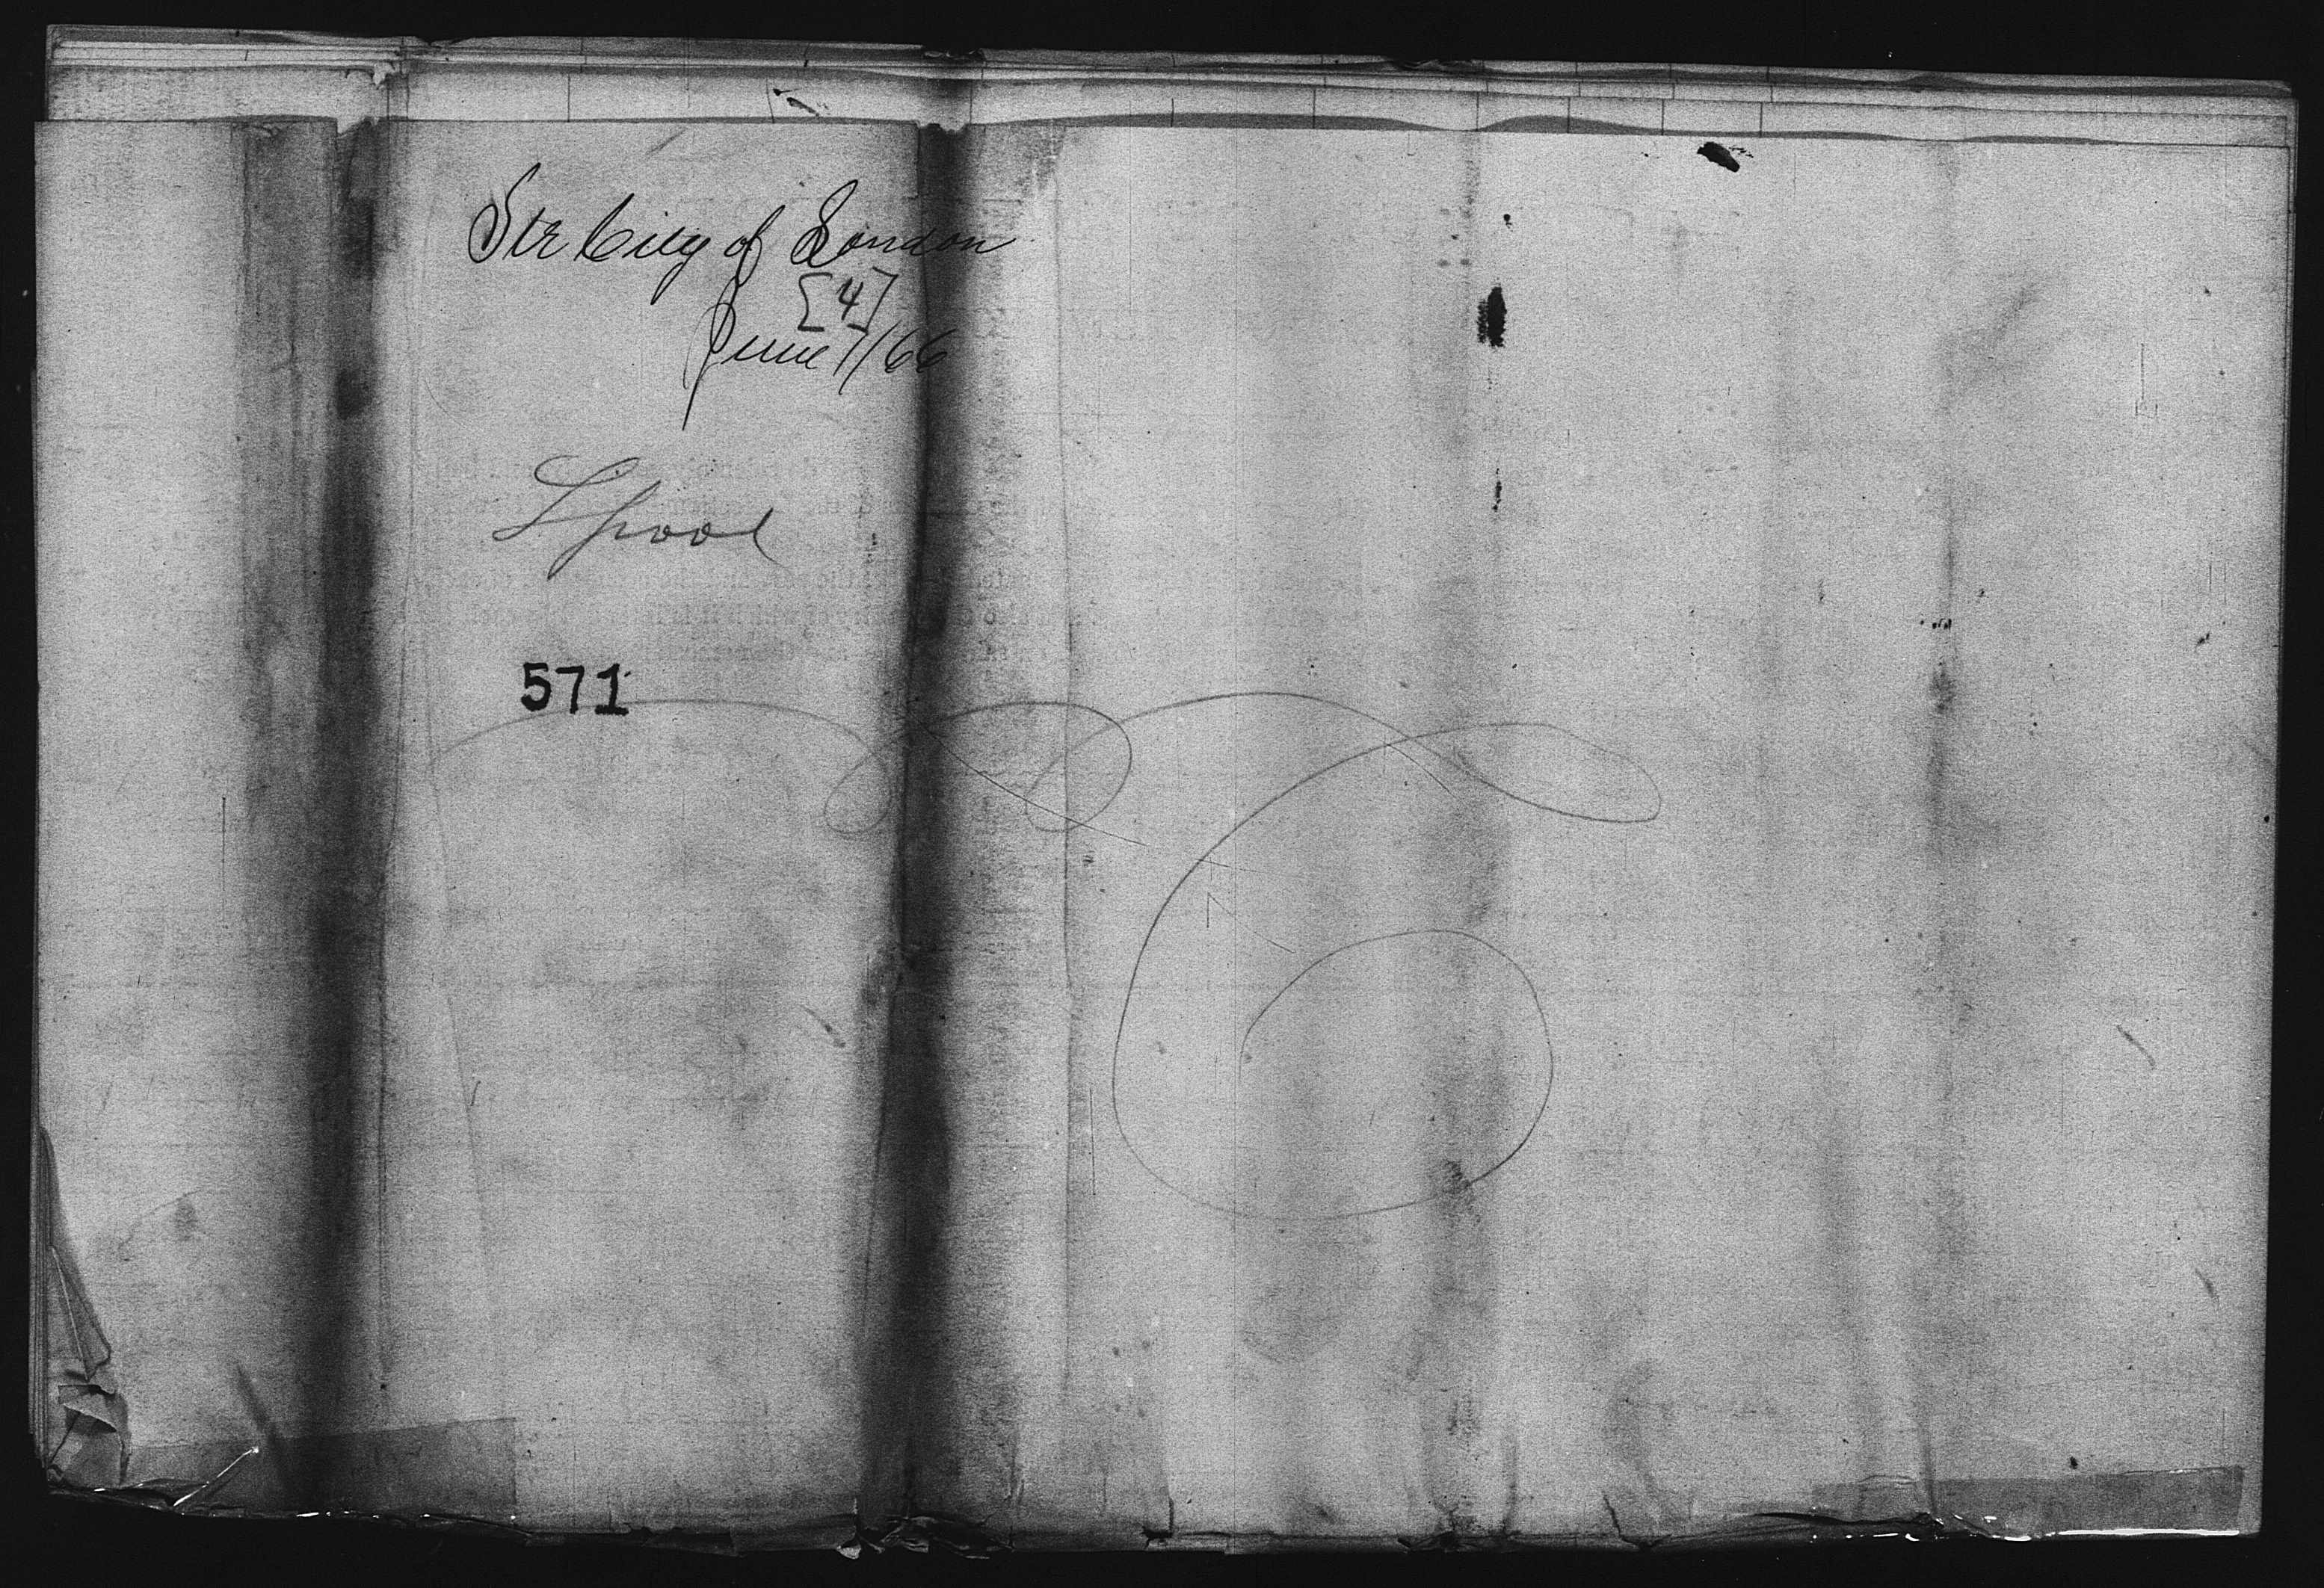 Str City of London
[4]
June 7/66
Lpool
571